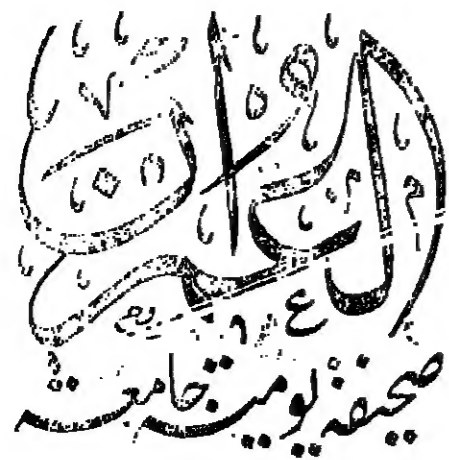 العراق
صحيفة يومية جامعة